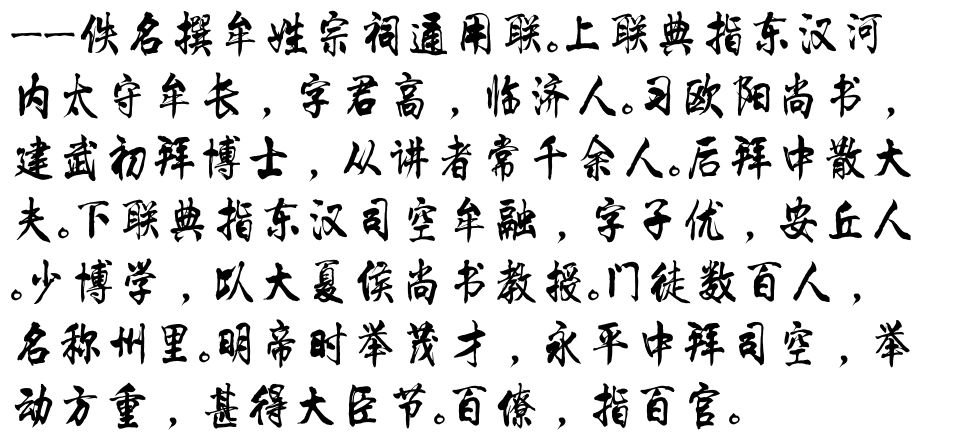 ——佚名撰牟姓宗祠通用联。上联典指东汉河
内太守牟长，字君高，临济人。习欧阳尚书，
建武初拜博士，从讲者常千余人。后拜中散大
夫。下联典指东汉司空牟融，字子优，安丘人
。少博学，以大夏侯尚书教授。门徒数百人，
名称州里。明帝时举茂才，永平中拜司空，举
动方重，甚得大臣节。百僚，指百官。